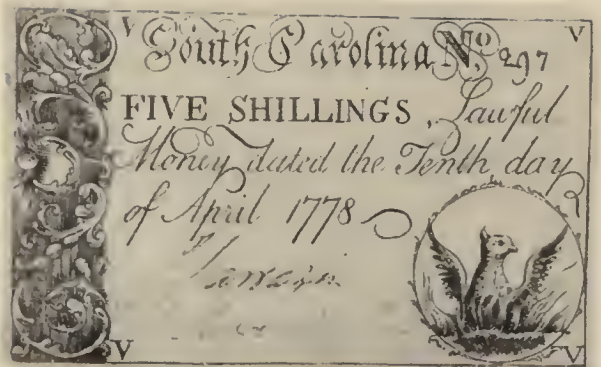 V South Carolina No. 297 V
FIVE SHILLINGS, Lawful
Money dated the Tenth day
of April 1778
V V